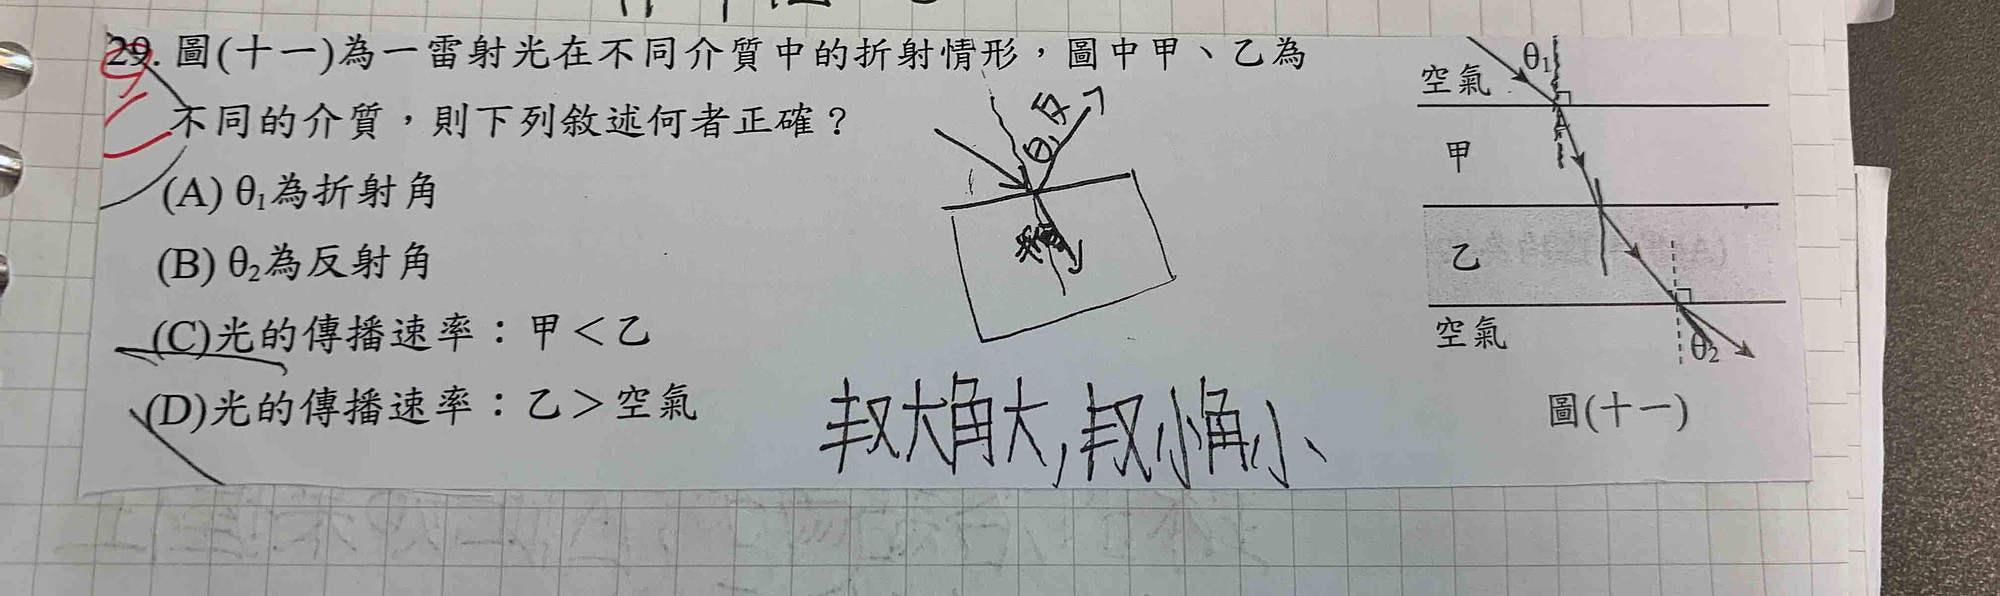 29. 圖(十一)為一雷射光在不同介質中的折射情形，圖中甲、乙為
不同的介質，則下列敘述何者正確？
(A) θ₁為折射角
(B) θ₂為反射角
(C)光的傳播速率：甲＜乙
(D)光的傳播速率：乙＞空氣
θ₁ 反
空氣
θ₁
甲
乙
空氣
θ₂
圖(十一)
大角大, 小角小、